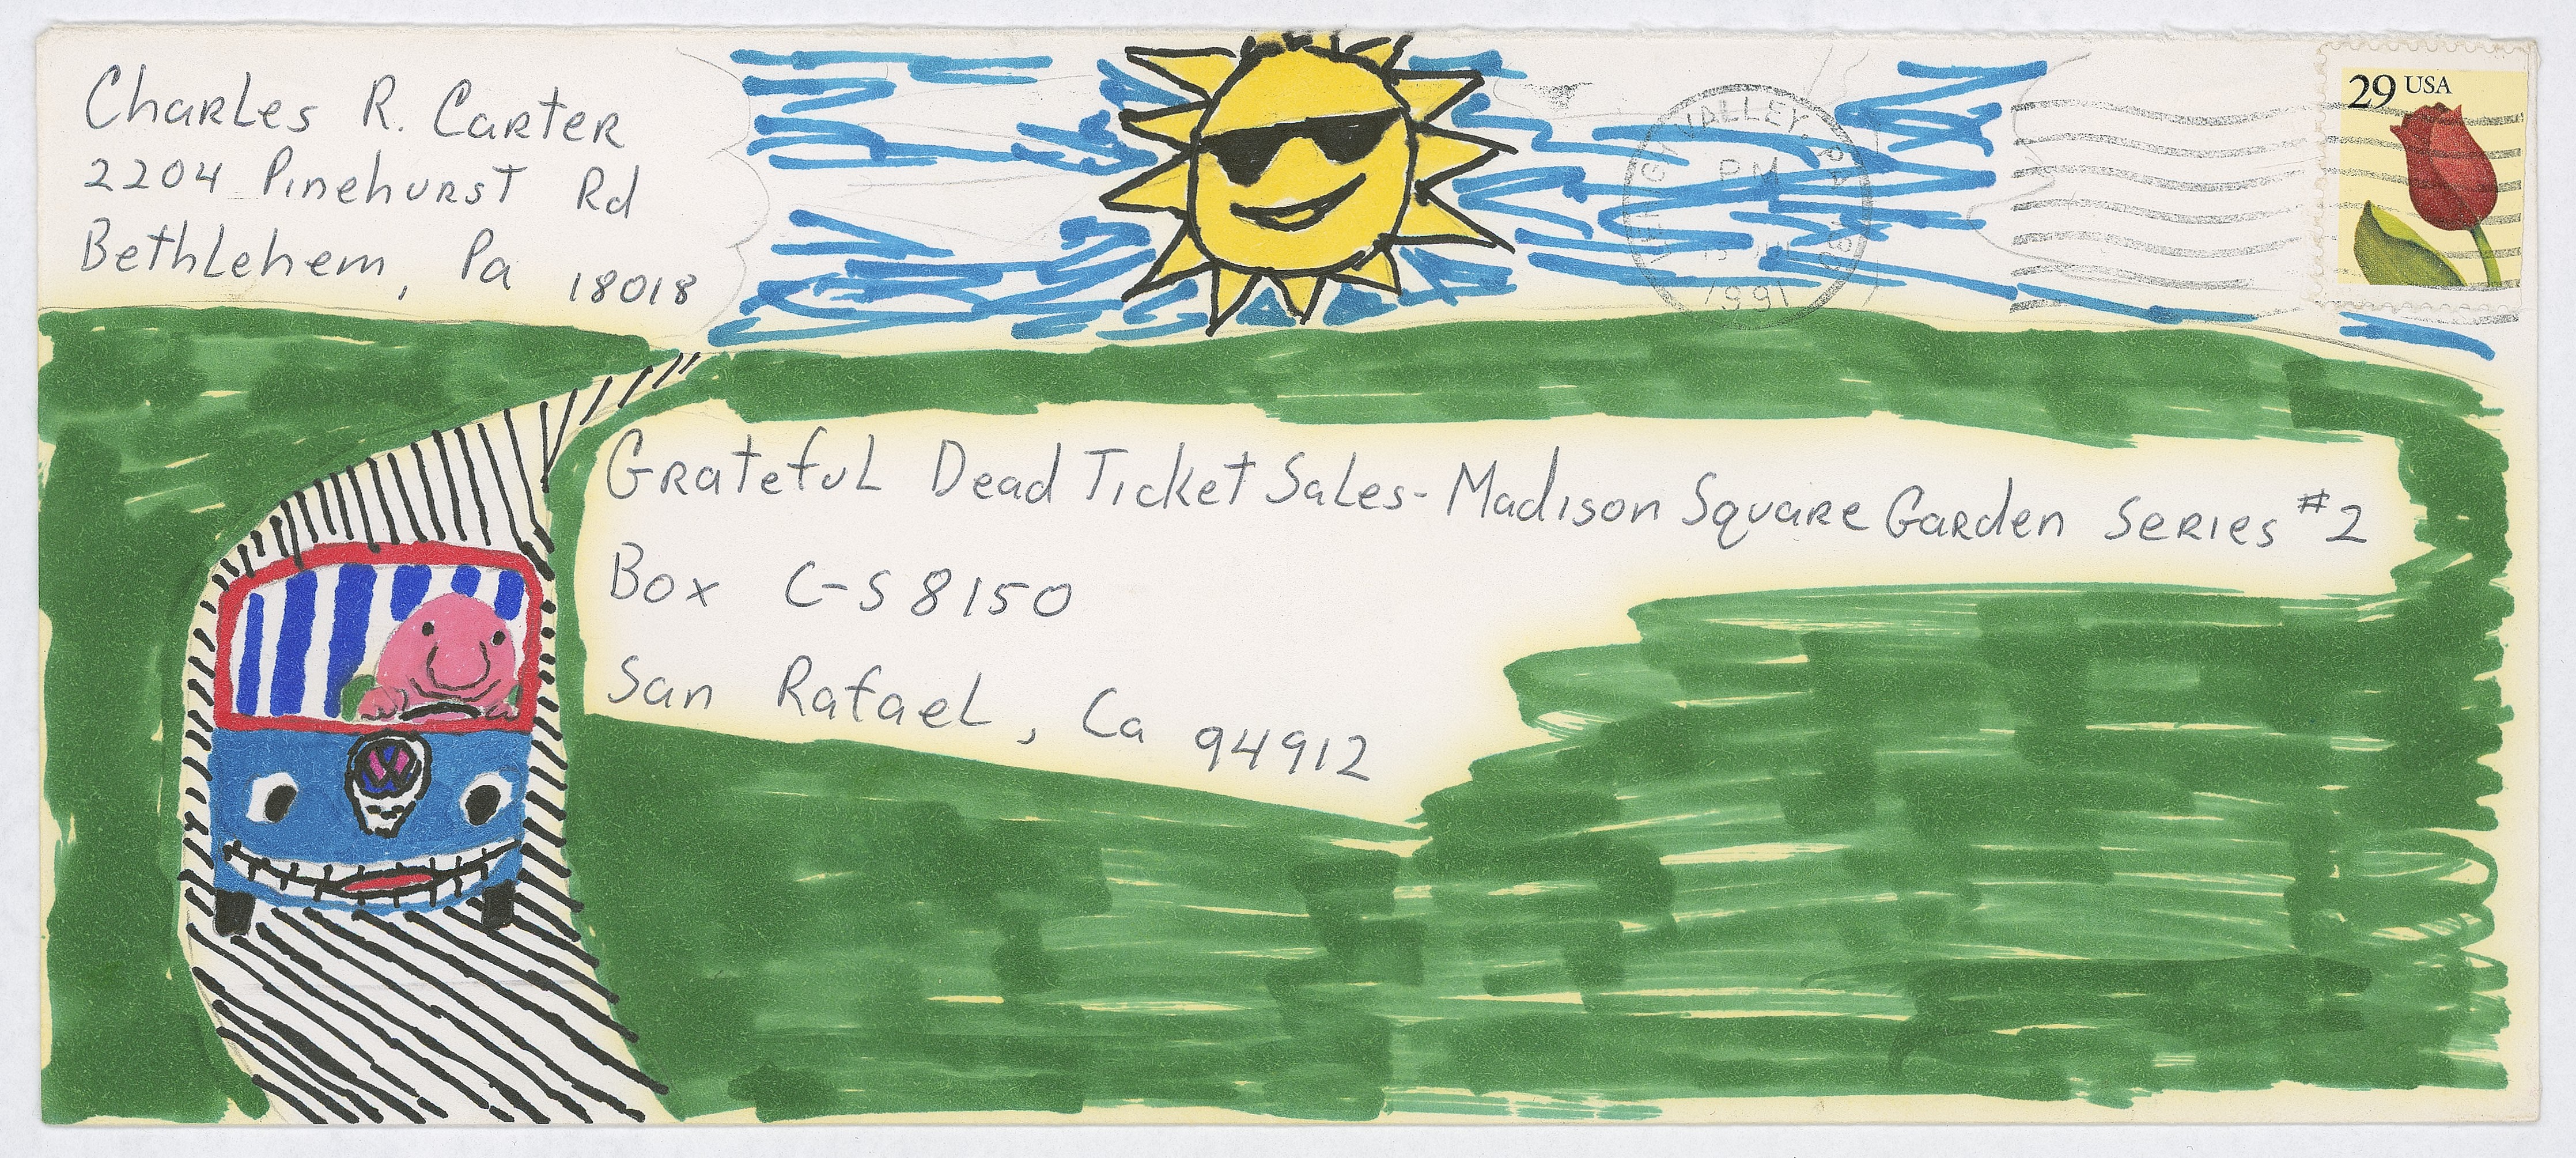 Charles R. Carter
2204 Pinehurst Rd
Bethlehem, Pa 18018
VALLEY, PA
PM
1991
29 USA
Grateful Dead Ticket Sales - Madison Square Garden Series #2
Box C-S 8150
San Rafael, Ca 94912